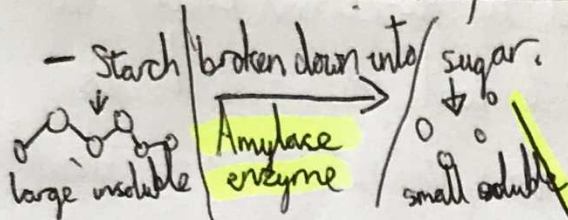 - Starch broken down into sugar.
Amylace
enzyme
large insoluble
small soluble